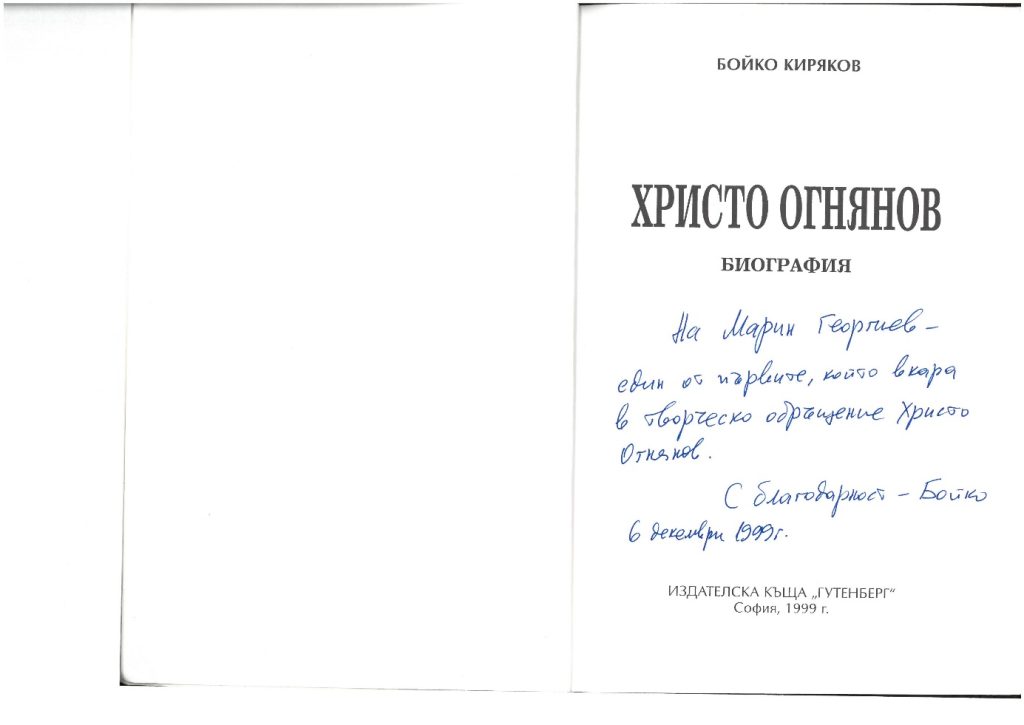 БОЙКО КИРЯКОВ
ХРИСТО ОГНЯНОВ
БИОГРАФИЯ
На Марин Георгиев –
един от първите, който вкара
в творческо обръщение Христо
Огнянов.
С благодарност – Бойко
6 декември 1999 г.
ИЗДАТЕЛСКА КЪЩА „ГУТЕНБЕРГ“
София, 1999 г.